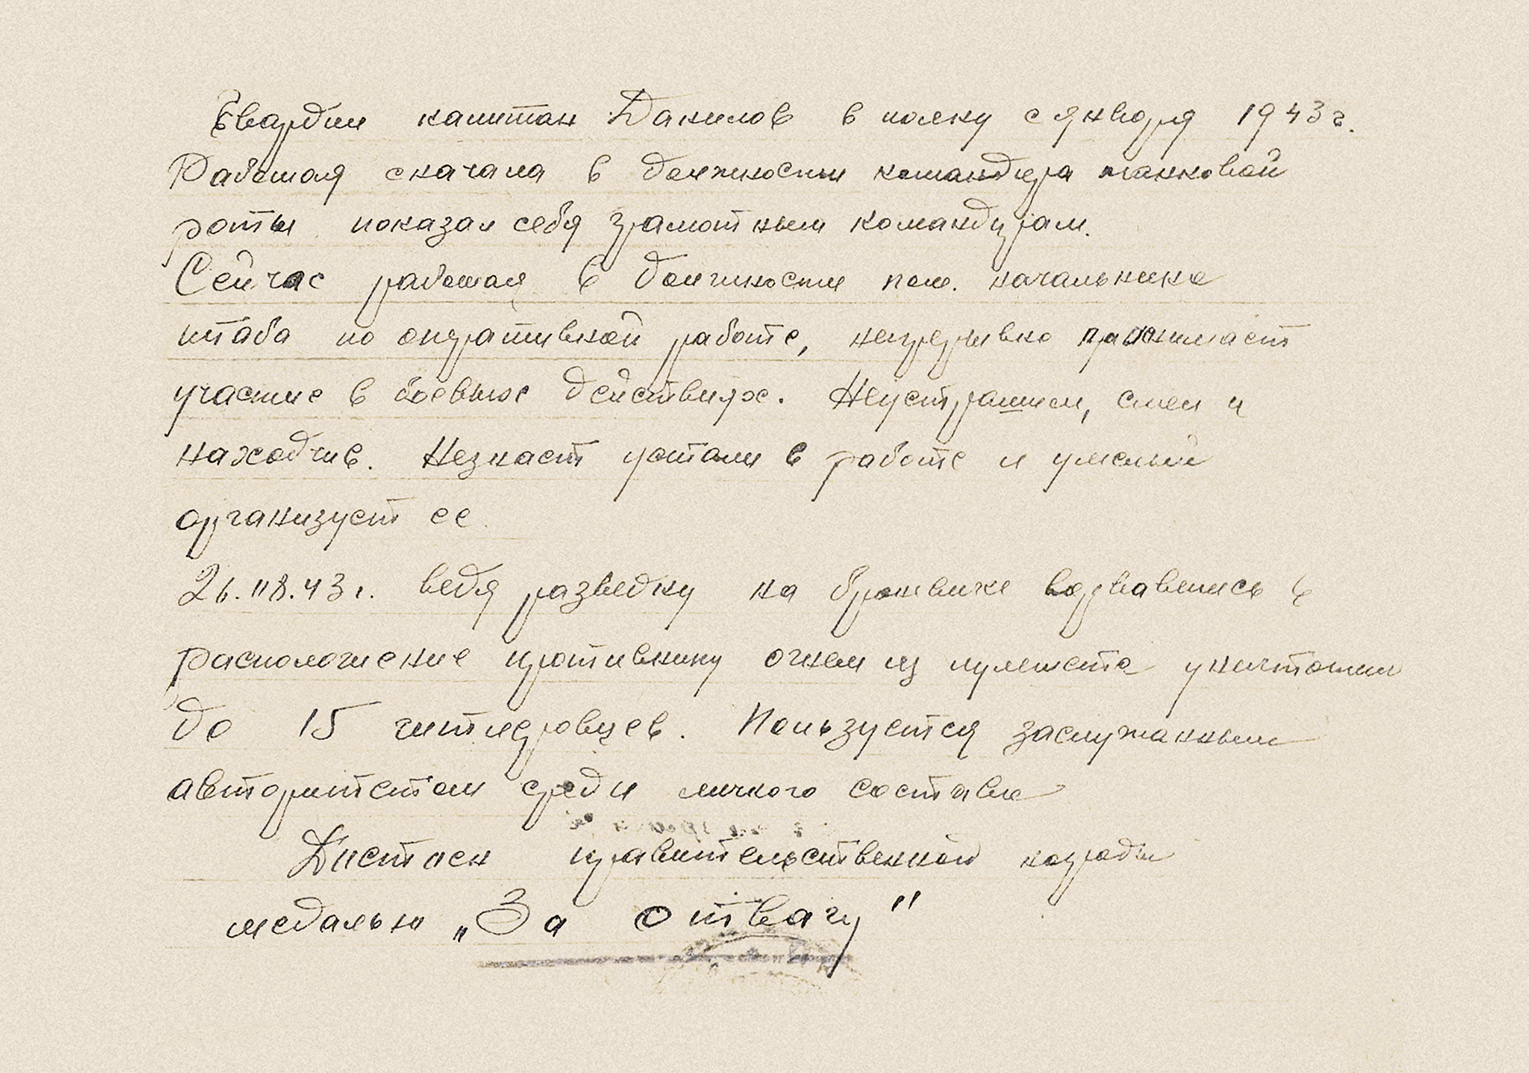 Гвардии капитан Данилов в полку с января 1943 г.
Работая сначала в должности командира танковой
роты показал себя грамотным командирам.
Сейчас работая в должности пом. начальника
штаба по оперативной работе, непрерывно принимает
участие в боевых действиях. Неустрашим, смел и
находчив. Незнает устали в работе и умелый
организует ее.
26.08.43 г. ведя разведку на броневике ворвавшись в
расположение противнику огнем из пулемета уничтожил
до 15 гитлеровцев. Пользуется заслужанным
авторитетом среди личного состава
Достоен правительственной награды
медалью „За отвагу"